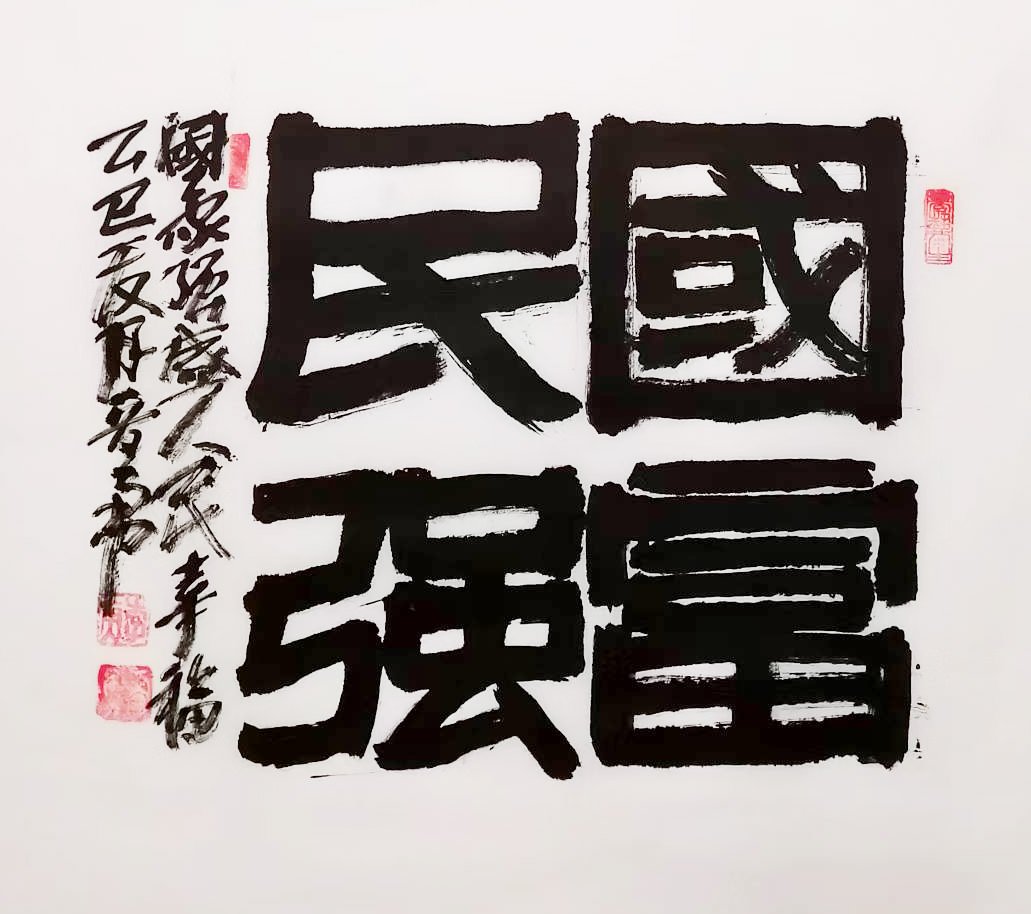 國富
民强
國家强盛人民幸福
乙巳五月晋